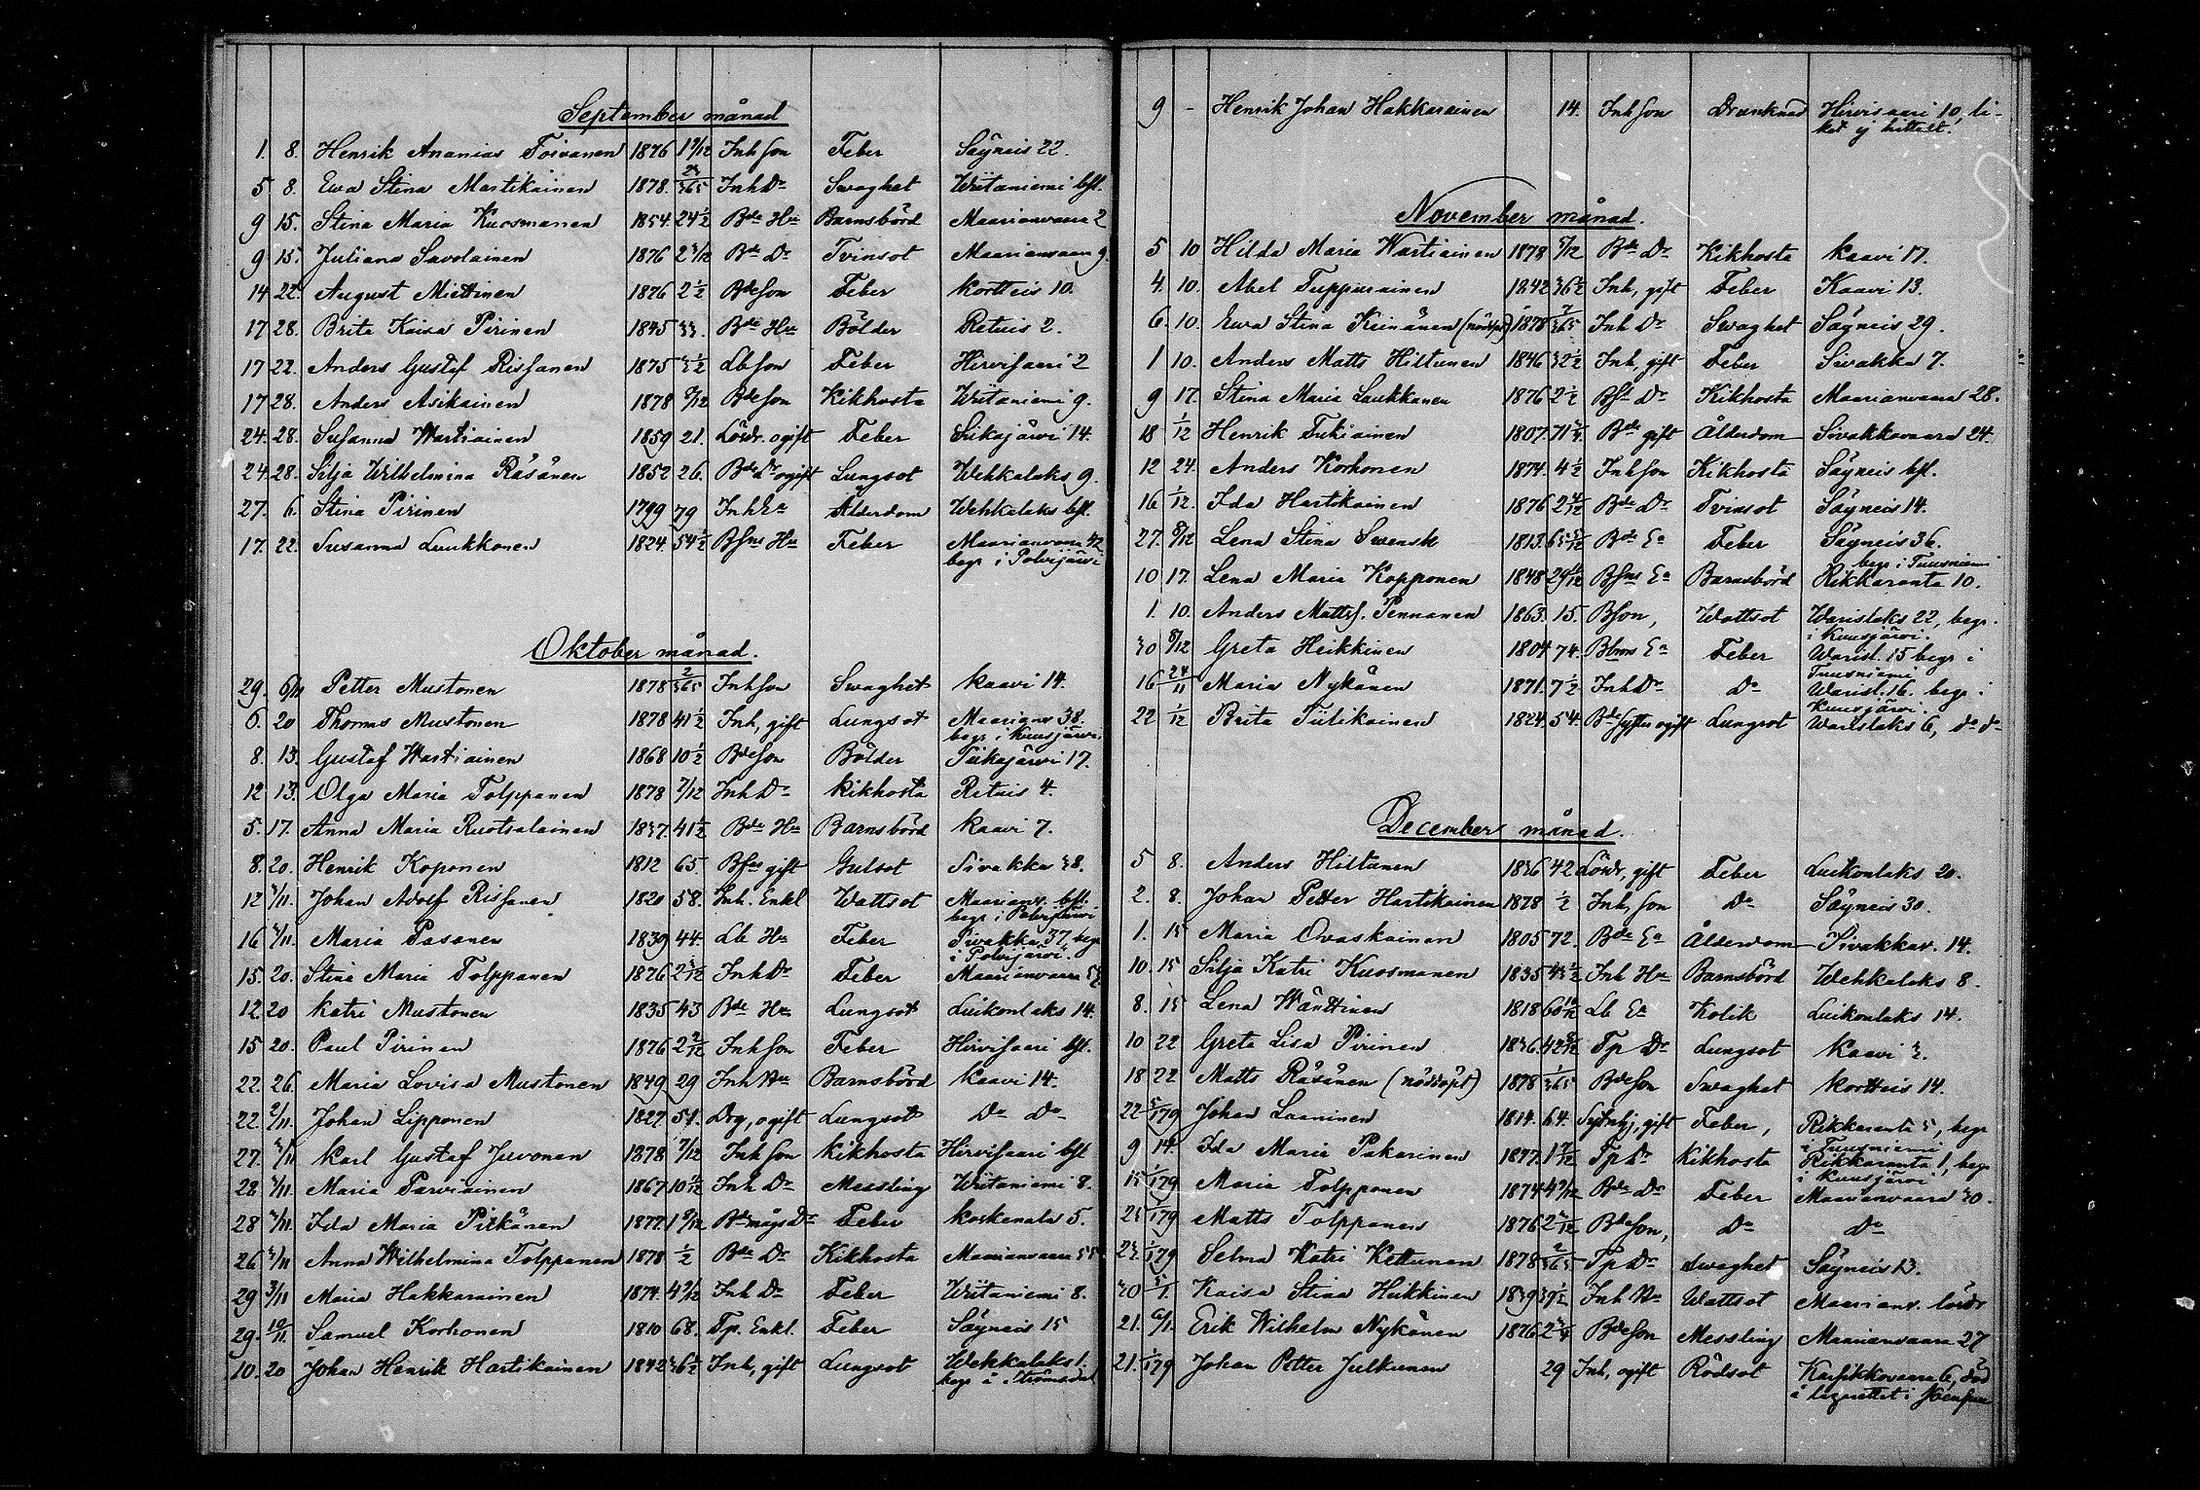 September månad
1. 8. Henrik Ananias Toivanen 1876 1 9/12 Inh son Feber Säyneis 22.
5 8. Ewa Stina Martikainen 1878. 24/365 Inh Dr Swaghet Wiitaniemi bfl.
9 15. Stina Maria Kuosmanen 1854. 24 1/2 Bde Hu Barnsbörd Maarianvaara 2
9 15. Juliana Savolainen 1876 2 3/12 Bde Dr Tvinsot Maarianvaara 9.
14 22. August Miettinen 1876 2 1/2 Bde son Feber Kortteis 10.
17 28. Brita Kaisa Pirinen 1845 33. Bde Hu Bölder Retuis 2.
17 22. Anders Gustaf Rissanen 1875 3 1/2 Lb son Feber Hirvisaari 2
17 28. Anders Asikainen 1878 /12 Bde son Kikhosta Wiitaniemi 9.
24. 28. Susanna Wartiainen 1859 21. Lösdr. ogift Feber Siikajärvi 14.
24. 28. Silja Wilhelmina Räsänen 1852 26. Bde Dr ogift Lungsot Wehkalaks 9.
27. 6. Stina Pirinen 1799 79 Inh Ea Ålderdom Wehkalaks bfl.
17. 22. Susanna Luukkonen 1824. 54 1/2 Bfns Hu Feber Maarianvaara 42
begr i Polvijärvi
Oktober månad.
29. 6/11 Petter Mustonen 1878 2/365 Inh son Swaghet Kaavi 14.
6. 20 Thomas Mustonen 1878 41 1/2 Inh, gift Lungsot Maarianv 38.
begr i Kuusjärvi.
8. 13. Gustaf Wartiainen 1868 10 1/2 Bde son Bölder Siikajärvi 17.
12 13. Olga Maria Tolppanen 1878 7/12 Inh Dr Kikhosta Retuis 4.
5. 17. Anna Maria Ruotsalainen 1837. 41 1/2 Bde Hu Barnsbörd Kaavi 7.
8. 20. Henrik Koponen 1812 65. Bfns gift Gulsot Sivakka 38.
12 3/11. Johan Adolf Rissanen 1820 58. Inh. Enkl Wattsot Maarianv. bfl.
begr i Polvijärvi
16 3/11. Maria Pasanen 1839 44. Lb Hu Feber Sivakka 37, begr
i Polvijärvi.
15. 20. Stina Maria Tolppanen 1876 2 3/12 Inh Dr Feber Maarianvaara
12. 20 Katri Mustonen 1835 43 Bde Hu Lungsot Luikonlaks 14.
15 20. Paul Pirinen 1876 2 2/12 Inh son Feber Hirvisaari bfl.
22. 26. Maria Lovisa Mustonen 1849 29 Inh Hu Barnsbörd Kaavi 14.
22. 2/11. Johan Lipponen 1827 51. Drg, ogift Lungsot Do Do
27. 3/11 Karl Gustaf Juvonen 1878 7/12 Inh son Kikhosta Hirvisaari bfl
28 3/11. Maria Parviainen 1867. 10 11/12 Inh Dr Messling Wiitaniemi 8.
28 3/11. Ida Maria Pitkänen 1877. 1 8/12 Bde mågs Dr Feber Koskenala 5.
26 3/11 Anna Wilhelmina Tolppanen 1878 1/2 Bde Dr Kikhosta Maarianvaara
29 3/11 Maria Hakkarainen 1874. 4 2/12 Inh Dr Feber Wiitaniemi 8.
29. 10/11. Samuel Korhonen 1810 68. Tp. Enkl. Feber Säyneis 15
10. 20 Johan Henrik Hartikainen 1842 36 1/2 Inh, gift Lungsot Wehkalaks 1.
begr å Strömsdal
9 - Henrik Johan Hakkarainen 14. Inh son Drunknad Hirvisaari 10, li-
ket ej hittadt.
November månad.
5 10 Hilda Maria Wartiainen 1878 /12 Bde Dr Kikhosta Kaavi 17.
4. 10. Abel Tuppurainen 1842 36 1/2 Inh, gift Feber Kaavi 13.
6. 10. Ewa Stina Keinänen (nöddpt) 1878 2/365 Inh Dr Swaghet Säyneis 29.
1 10. Anders Matts Hiltunen 1846 32 1/2 Inh, gift Feber Sivakka 7.
9 17. Stina Maria Laukkanen 1876 2 1/2 Bfs Dr Kikhosta Maarianvaara 28.
18 1/12 Henrik Tukiainen 1807. 71 3/4. Bde gift Ålderdom Sivakkavaara 24.
12 24. Anders Korhonen 1874. 4 1/2 Inh son Kikhosta Säyneis bfl.
16 1/12. Ida Hartikainen 1876 2 4/12 Bde Dr Tvinsot Säyneis 14.
27. 8/12 Lena Stina Swensk 1813. 65 /12 Bde Ea Feber Säyneis 36.
begr i Tuusniemi
10 17. Lena Maria Kopponen 1848 29 11/12 Bfns Ea Barnsbörd Rikkaranta 10.
1. 10. Anders Mattss. Pennanen 1863. 15. Bson, Wattsot Warislaks 22, begr.
i Kuusjärvi.
30 8/12 Greta Heikkinen 1804 74. Ea Feber Warisl. 15 begr i
Tuusniemi
16 24/11 Maria Nykänen 1871. 7 1/2 Inh Dr Do Warisl. 16. begr i
Kuusjärvi.
22 1/12 Brita Tiilikainen 1824. 54. Bde syster ogift Lungsot Warislaks 6, do do
December månad.
5 8. Anders Hiltunen 1836 42 Lösdr, gift Feber Luikonlaks 20.
2. 8. Johan Petter Hartikainen 1878 1/2 Inh, son Do Säyneis 30.
1. 15 Maria Ovaskainen 1805 72. Bde Ea Ålderdom Sivakkav. 14.
10. 15 Silja Katri Kuosmanen 1835 43 1/2 Inh Hu Barnsbörd Wehkalaks 8.
8. 15 Lena Wänttinen 1818 60 10/12 Lb Ea Kolik Luikonlaks 14.
10 22 Greta Lisa Pirinen 1836. 42 /12 Tp Dr Lungsot Kaavi
18 22 Matts Räsänen (nöddöpt) 1878 1/365 Bde son Swaghet Kortteis 14.
22 5/1 79 Johan Laaninen 1814. 64. Sytnhj, gift Feber, Rikkaranta 5, begr
i Tuusniemi
9 14. Ida Maria Pakarinen 1877. 1 /12 Tp Dr Kikhosta Rikkaranta 1, begr
i Kuusjärvi
15 1/1 79 Maria Tolpponen 1874 4 /12 Bde Dr Feber Maarianvaara 30.
1/1 79 Matts Tolppanen 1876 2 /12 Bde son, Do Do
23. 1/1 79 Selma Katri Kettunen 1878 2/365 Tp Dr Swaghet Säyneis 13.
30 5/1. Kaisa Stina Heikkinen 1839 39 1/2 Inh Hu Wattsot Maarianv. lösdr
21. 6/1. Erik Wilhelm Nykänen 1876 2 3/4 Bde son Messling Maarianvaara 27
21. 1/1 79 Johan Petter Julkunen 29 Inh, ogift Rödsot Karsikkovaara 6, död
å lazarettet i Joensuu